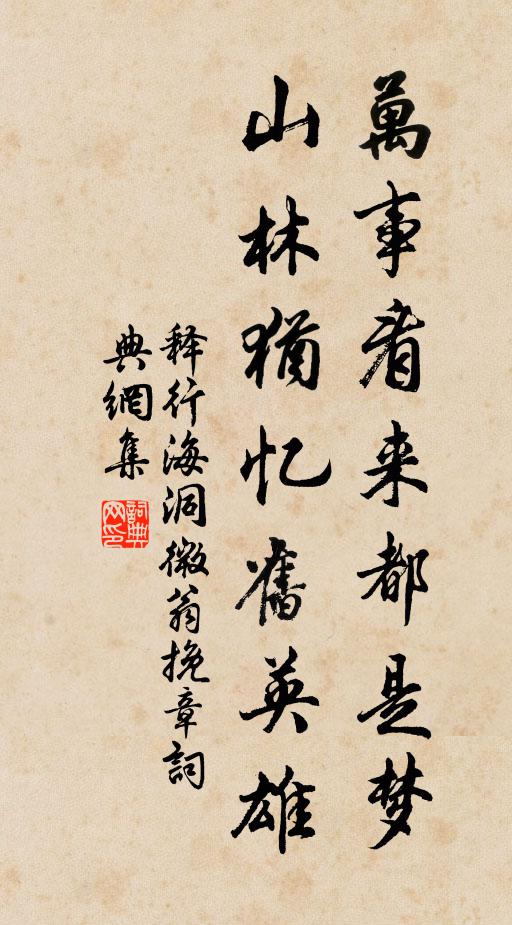 萬事看来都是梦
山林猶忆舊英雄
释行海洞微翁挽章詞
典網集
詞典
网印